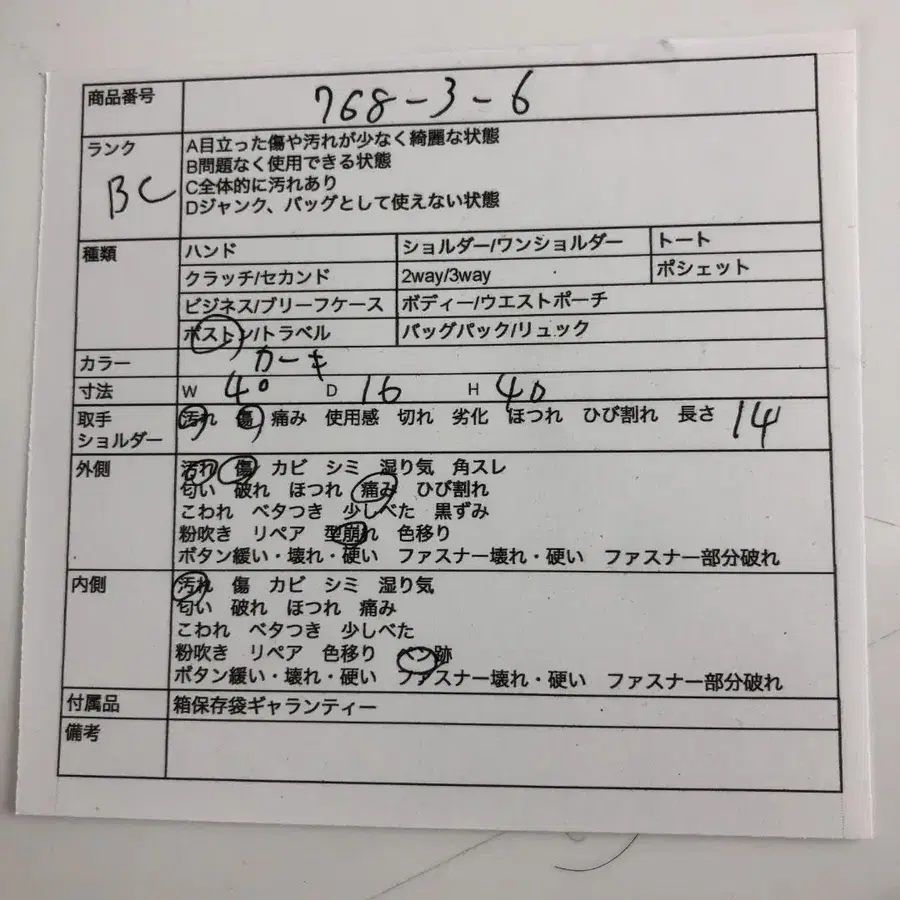 商品番号 768-3-6
ランク BC
A目立った傷や汚れが少なく綺麗な状態
B問題なく使用できる状態
C全体的に汚れあり
Dジャンク、バッグとして使えない状態
種類 ハンド ショルダー/ワンショルダー トート
クラッチ/セカンド 2way/3way ポシェット
ビジネス/ブリーフケース ボディー/ウエストポーチ
ボストン/トラベル バッグパック/リュック
カラー カーキ
寸法 W 40 D 16 H 40
取手 汚れ 傷 痛み 使用感 切れ 劣化 ほつれ ひび割れ 長さ 14
ショルダー
外側 汚れ 傷 カビ シミ 湿り気 角スレ
匂い 破れ ほつれ 痛み ひび割れ
こわれ ベタつき 少しべた 黒ずみ
粉吹き リペア 型崩れ 色移り
ボタン緩い・壊れ・硬い ファスナー壊れ・硬い ファスナー部分破れ
内側 汚れ 傷 カビ シミ 湿り気
匂い 破れ ほつれ 痛み
こわれ ベタつき 少しべた
粉吹き リペア 色移り ペン跡
ボタン緩い・壊れ・硬い ファスナー壊れ・硬い ファスナー部分破れ
付属品 箱保存袋ギャランティー
備考